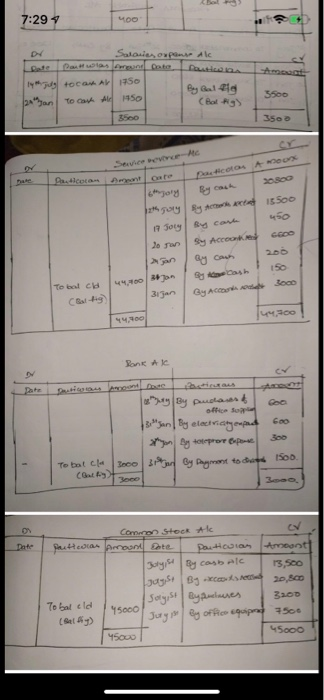 7:29
400
Dr Salaries expense A/c Cr
Date Particulars Amount Date Particulars Amount
14th July to cash A/c 1750
By Bal fig 3500
28th Jan To cash A/c 1750 (Bal fig)
3500 3500
Dr Service revenue A/c Cr
Date Particulars Amount Date Particulars Amount
6th July By cash 20800
12th July By Account 13500
17 July By cash 450
20 Jan By Account 6600
24 Jan By cash 200
To bal c/d 44,700 Jan By cash 150
(Bal fig) 31 Jan By Account 3000
44,700 44,700
Bank A/c
Dr Cr
Date Particulars Amount Date Particulars Amount
18th July By purchases of
office supplies 600
Jan By electricity 600
Jan By telephone Expense 300
To bal c/d 3000 31st Jan By Payment to 1500
(Bal fig) 3000 3000
Dr Common Stock A/c Cr
Date Particulars Amount Date Particulars Amount
July 1st By cash A/c 13,500
July 1st By 20,800
July 1st By 3200
To bal c/d 45000 July 1st By office equipment 7500
(Bal fig) 45000
45000